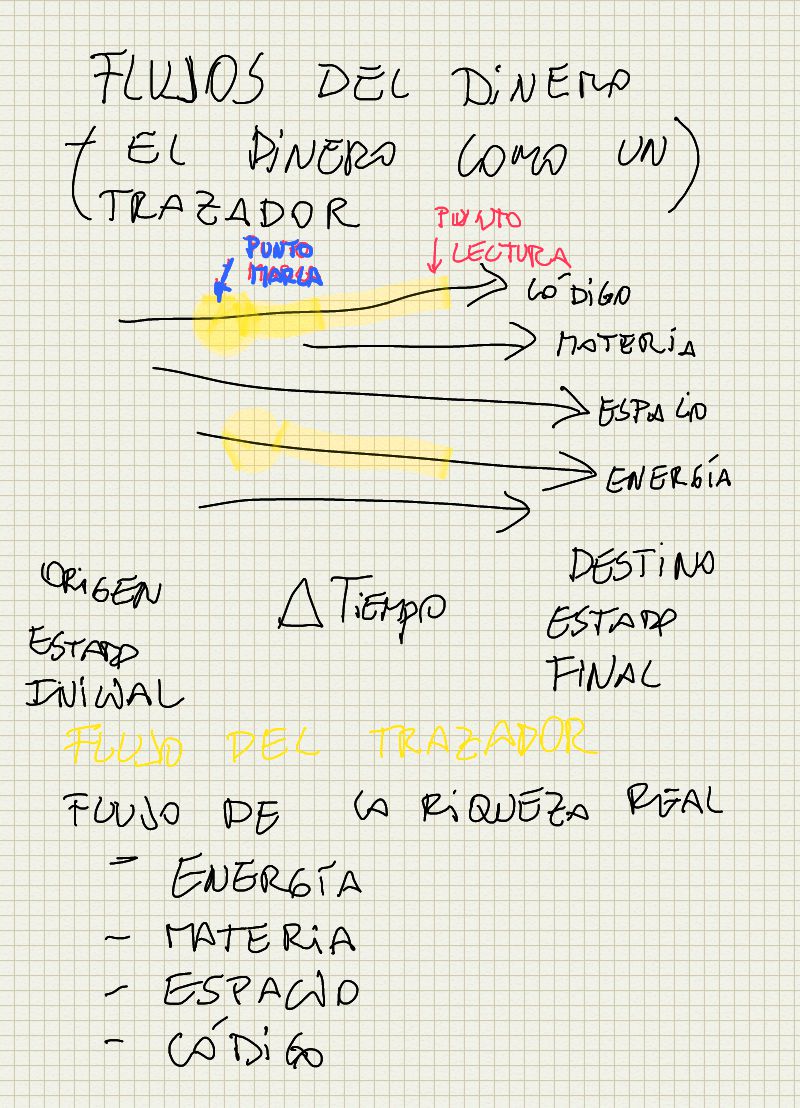 FLUJOS DEL DINERO
(EL DINERO COMO UN
TRAZADOR)
PUNTO
MARCA
PUNTO
LECTURA
CÓDIGO
MATERIA
ESPACIO
ENERGÍA
ORIGEN
ESTADO
INICIAL
Δ TIEMPO
DESTINO
ESTADO
FINAL
FLUJO DEL TRAZADOR
FLUJO DE LA RIQUEZA REAL
- ENERGÍA
- MATERIA
- ESPACIO
- CÓDIGO